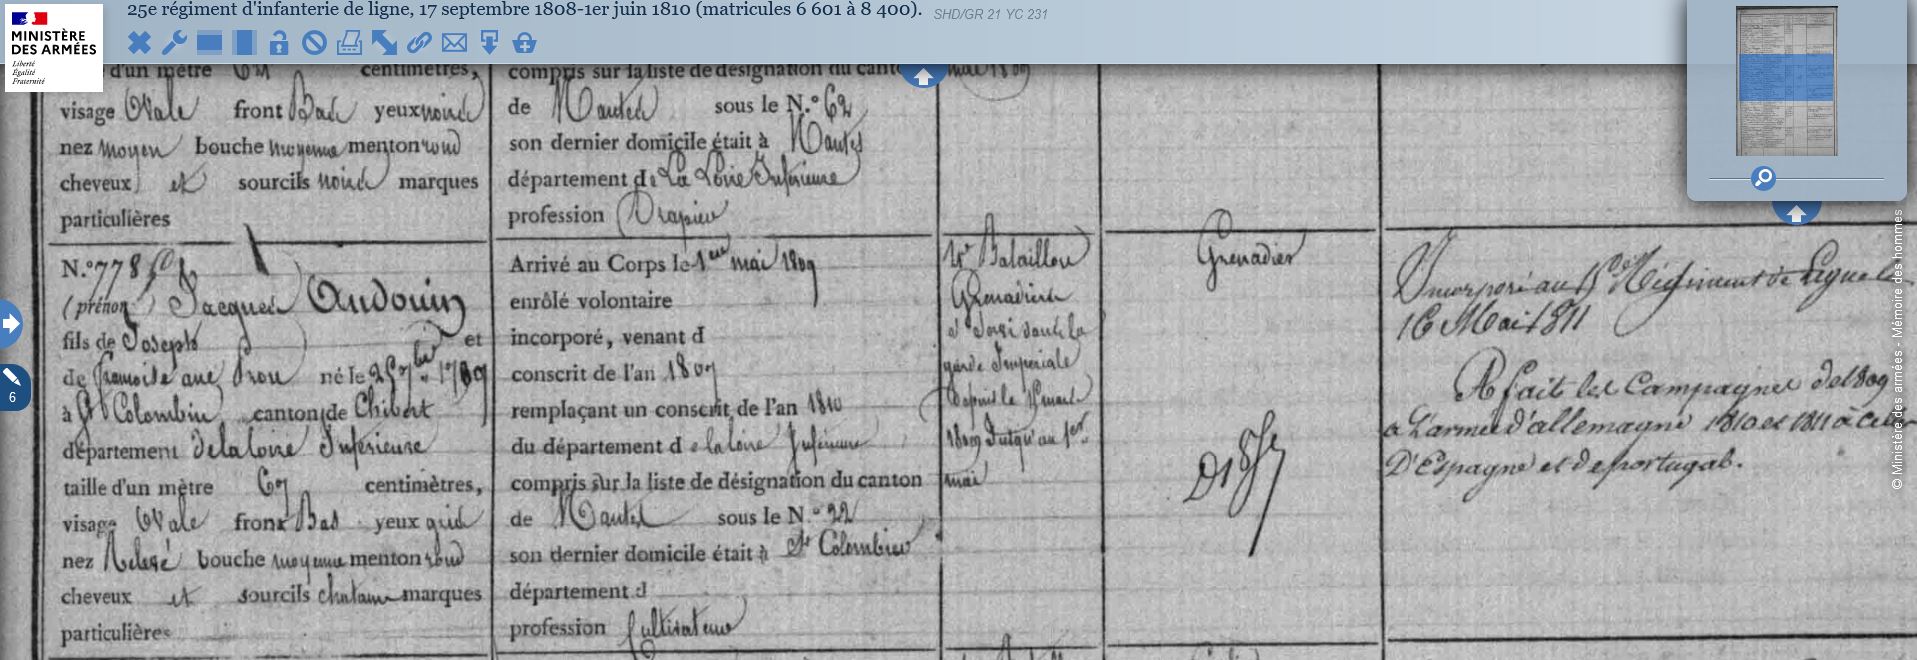 25e régiment d'infanterie de ligne, 17 septembre 1808-1er juin 1810 (matricules 6 601 à 8 400). SHD/GR 21 YC 231
MINISTÈRE
DES ARMÉES
Liberté
Égalité
Fraternité
6
d'un mètre centimètres,
visage Ovale front Bas yeux noirs
nez moyen bouche moyenne menton rond
cheveux et sourcils noirs marques
particulières
compris sur la liste de désignation du canton
de Nantes sous le N.° 62
son dernier domicile était à Nantes
département de La Loire Inférieure
profession Drapier
mai 1809
N.° 778
(prénom) Jacques Audouin
fils de Joseph et
de françoise né le 25 7bre 1789
à St Colombin canton de
département de la loire Inférieure
taille d'un mètre 67 centimètres,
visage Ovale front Bas yeux gris
nez Relevé bouche moyenne menton rond
cheveux et sourcils chatains marques
particulières
Arrivé au Corps le 1er mai 1809
enrôlé volontaire
incorporé, venant d
conscrit de l'an 1809
remplaçant un conscrit de l'an 1810
du département de la loire Inférieure
compris sur la liste de désignation du canton
de Nantes sous le N.° 22
son dernier domicile était à St Colombin
département d
profession Cultivateur
Bataillon
Grenadiers
garde Impériale
depuis le
1809 Jusqu'au 1er
mai
Grenadier
Incorporé au Régiment de Ligne le
16 Mai 1811
A fait les Campagnes de 1809
a L'armée d'allemagne 1810 et 1811 à celle
D'Espagne et de portugal.
© Ministère des armées - Mémoire des hommes